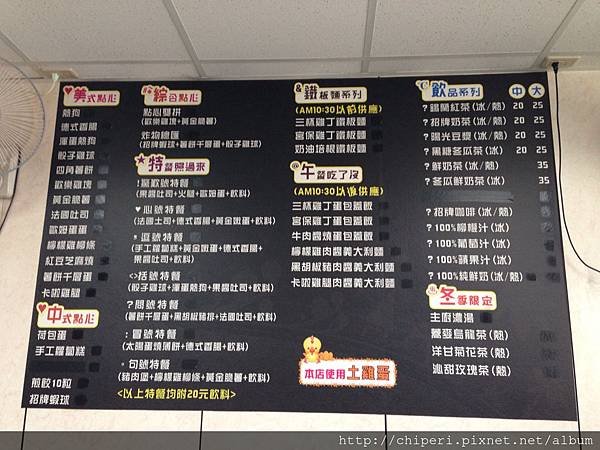 美式點心
熱狗
德式香腸
渾蛋熱狗
骰子雞球
四角薯餅
歡樂雞塊
黃金脆薯
法國吐司
歐姆蛋蛋
檸檬雞柳條
紅豆芝麻燒
薯餅千層蛋
卡啦雞腿
中式點心
荷包蛋
手工蘿蔔糕
煎餃10粒
招牌蝦球
綜合點心
點心雙拼
(歡樂雞塊+黃金脆薯)
炸物總匯
(招牌蝦球+薯餅千層蛋+骰子雞球)
特餐照過來
!驚歎號特餐
(果醬吐司+火腿+歐姆蛋+飲料)
♥心號特餐
(法國土司+德式香腸+黃金嫩蛋+飲料)
,逗號特餐
(手工蘿蔔糕+黃金嫩蛋+德式香腸+
果醬吐司+飲料)
<>括號特餐
(骰子雞球+渾蛋熱狗+果醬吐司+飲料)
?問號特餐
(薯餅千層蛋+黑胡椒豬排+法國吐司+飲料)
:冒號特餐
(太陽蛋燒薄餅+德式香腸+飲料)
。句號特餐
(豬肉堡+檸檬雞柳條+黃金脆薯+飲料)
<以上特餐均附20元飲料>
鐵板麵系列
(AM10:30以前供應)
三杯雞丁鐵板麵
宮保雞丁鐵板麵
奶油培根鐵板麵
午餐吃了沒
(AM10:30以後供應)
三杯雞丁蛋包蓋飯
宮保雞丁蛋包蓋飯
牛肉醬燒蛋包蓋飯
檸檬雞肉醬義大利麵
黑胡椒豬肉醬義大利麵
卡啦雞腿肉醬義大利麵
本店使用土雞蛋
飲品系列 中 大
?錫蘭紅茶(冰/熱) 20 25
?招牌奶茶(冰/熱) 20 25
?陽光豆漿(冰/熱) 20 25
?黑糖冬瓜茶(冰) 20 25
?鮮奶茶(冰/熱) 35
?冬瓜鮮奶茶(冰) 35
?招牌咖啡(冰/熱)
?100%檸檬汁(冰)
?100%葡萄汁(冰)
?100%蘋果汁(冰)
?100%純鮮奶(冰/熱)
冬季限定
主廚濃湯
蕎麥烏龍茶(熱)
洋甘菊花茶(熱)
沁甜玫瑰茶(熱)
http://chiperi.pixnet.net/album